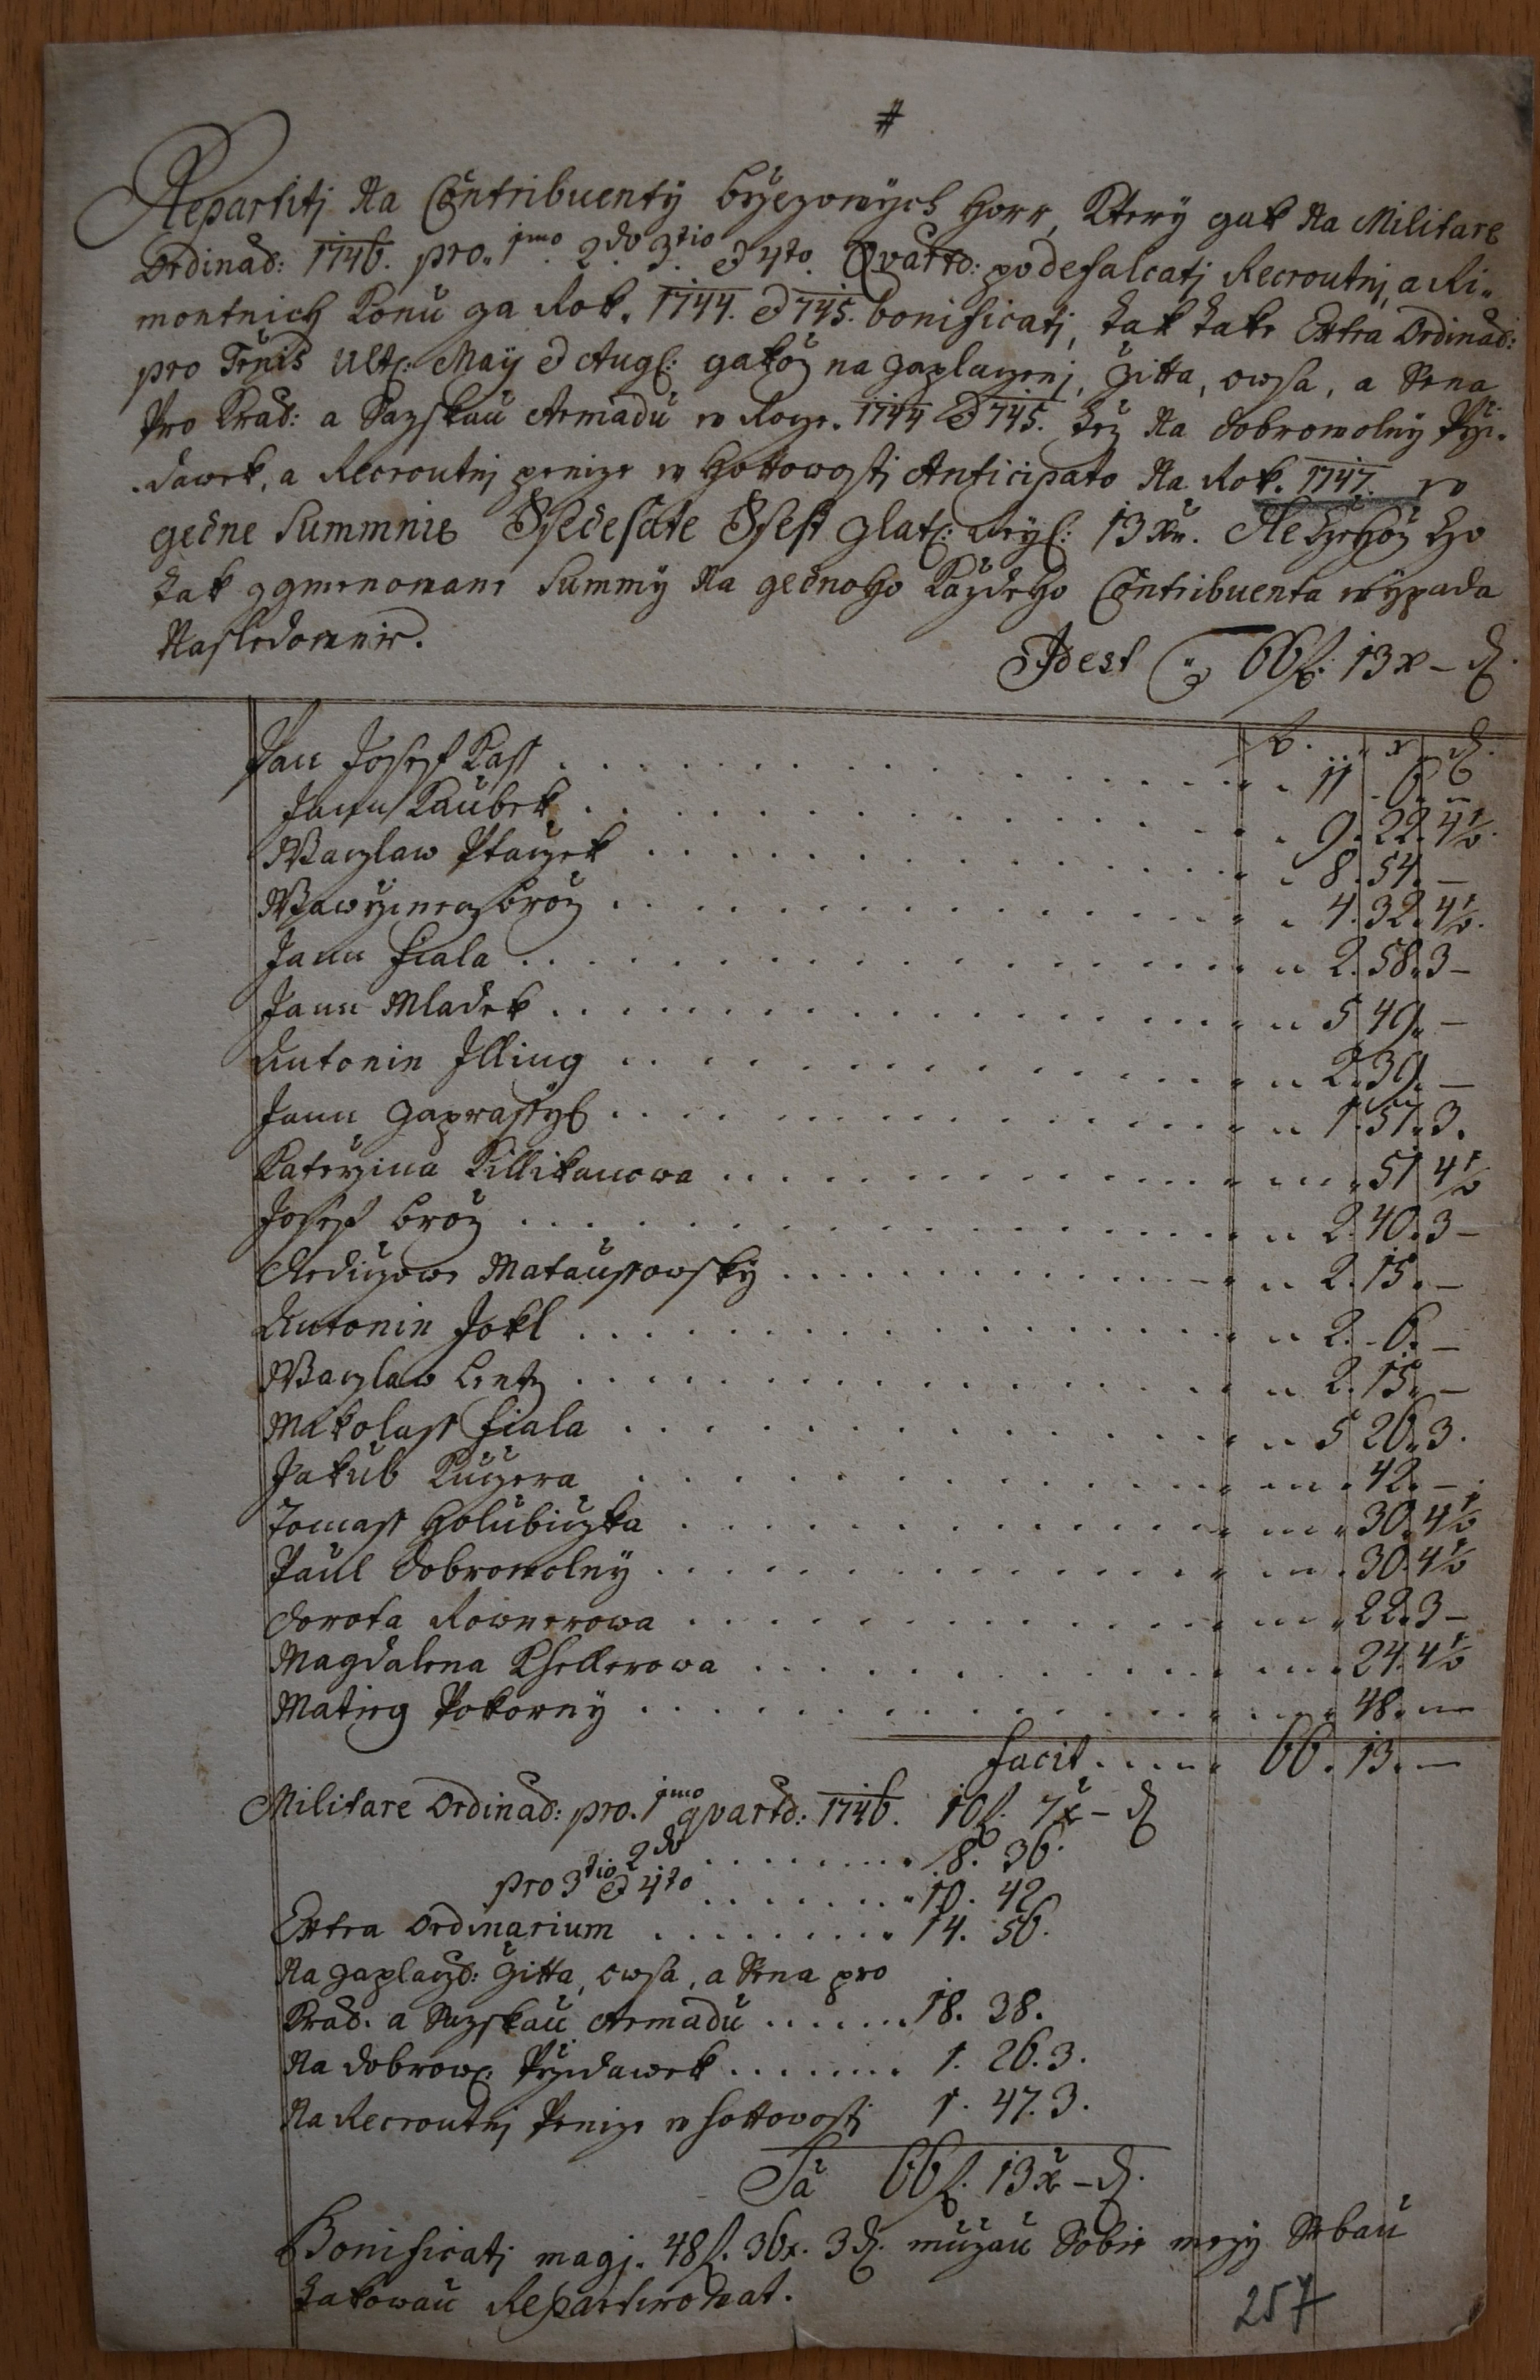 #
Repartitj Na Contribuenty Brzezowých Horr, Který gak Na Militare
Ordinar: 1746. pro. 1mo. 2do. 3tio. et 4to. Quartr: po defalcatj Recroutnj, a Ri-
montnich Konu za Rok. 1744. et 745. bonificatj, tak take Extra Ordinar:
pro Tenis Ult: May et Aug: gakož na zaplaczenj, Žitta, owsa, a Sena
Pro Kral: a Saxskau Armádu w Rocze. 1744 et 745. též Na dobrowolný Przi-
dawek, a Recroutnj penize w Hottowostj Anticipato Na Rok. 1747. w
gedne Summnie Ssedesate Ssest zlat: Reyn: 13 Xu. Ze kterehož ho
tak zgmenowane Summy Na gednoho Každeho Contribuenta wypada
Nasledownie.
Id est 66 f. 13 x – d.
f. x d.
Pan Josef Kass . . . 11 6. 6
Jann Kaubek . . . 9. 22. 4½
Waczlaw Ptaczek . . . 8. 54. –
Wawrzinecz Brož . . . 4. 32. 4½.
Jann Fiala . . . 2. 58. 3 –
Jann Mladek . . . 5 49. –
Antonin Illing . . . 2. 39. –
Jann Zaprassyl . . . 1. 51. 3.
Katerzina Killikanowa . . . 51 4½
Josef Brož . . . 2. 40. 3 –
Dediczowe Mataussowský . . . 2. 15. –
Antonin Jokl . . . 2. 6. –
Waczlaw Lentz . . . 2. 15. –
Mikolass Fiala . . . 5 26. 3.
Jakub Kuczera . . . 42. –
Tomass Holubiczka . . . 30. 4½
Paul Dobrowolný . . . 30. 4½
Dorota Rownerowa . . . 22. 3 –
Magdalena Khellerowa . . . 24. 4½
Matieg Pokorný . . . 48. –
Facit . . . 66. 13. –
Militare Ordinar: pro. 1mo quartr: 1746. 10 f. 7 x – d
2do . . . 8. 36.
pro 3tio et 4to . . . 10. 42
Extra Ordinarium . . . 14. 56.
Na zaplacz: Žitta, owsa, a Sena pro
Kral. a Saxskau Armadu . . . 18. 38.
Na dobrow: Przidawek . . . 1. 26. 3.
Na Recroutnj Penize w hottowostj 1. 47. 3.
Sa 66 f. 13 x – d.
Bonificatj magj. 48 f. 36 x. 3 d. mužau Sobie mezy Sebau
takowau Repartirowat.
257